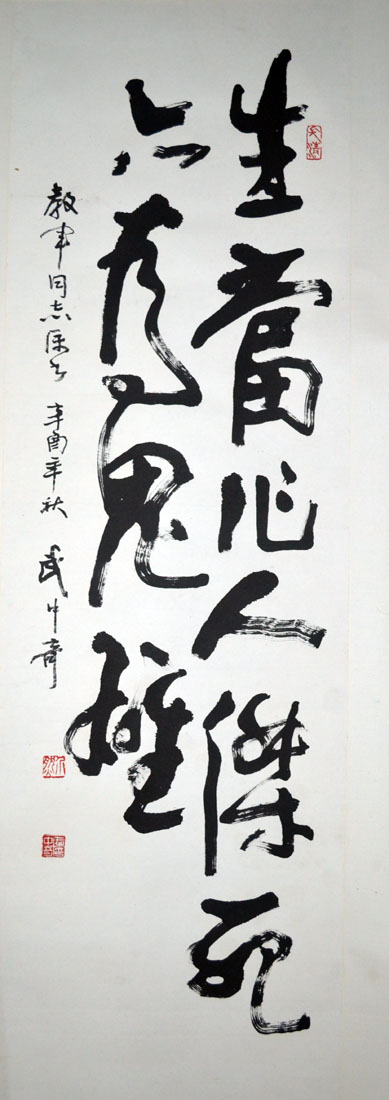 生當作人傑死
亦為鬼雄
教軍同志属书 辛酉年秋 武中奇